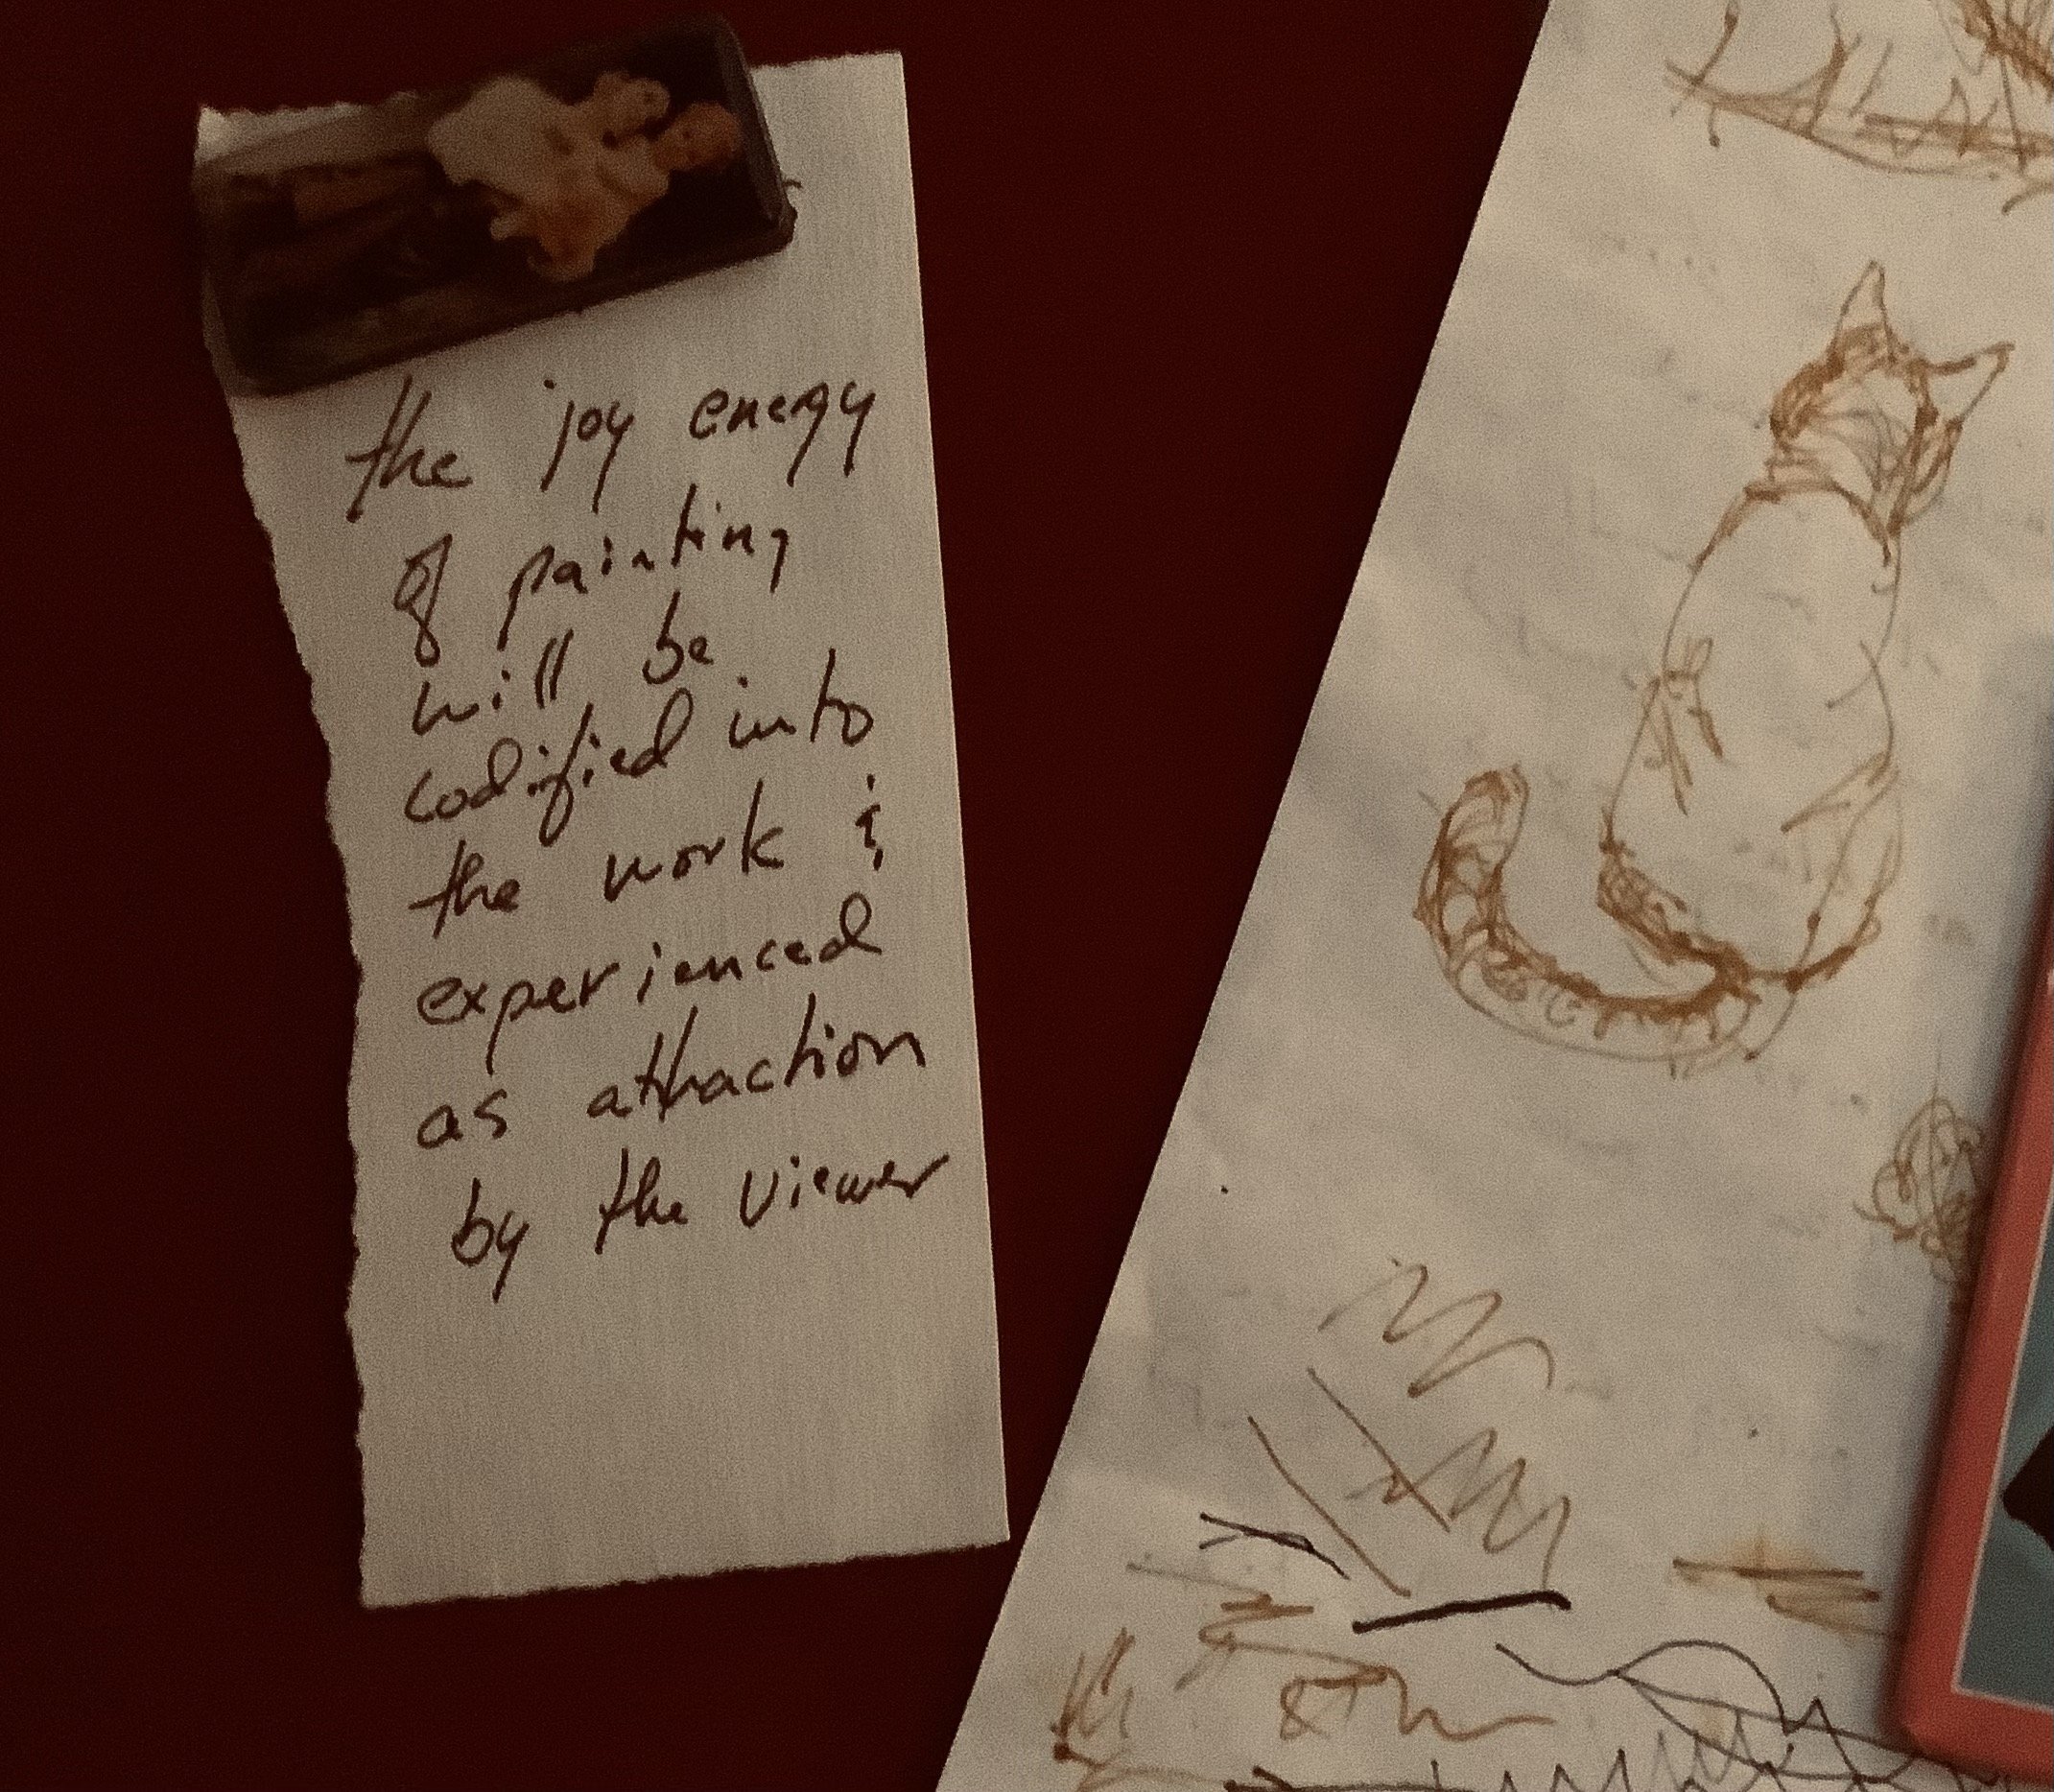 the joy energy
of painting
will be
codified into
the work &
experienced
as attraction
by the viewer